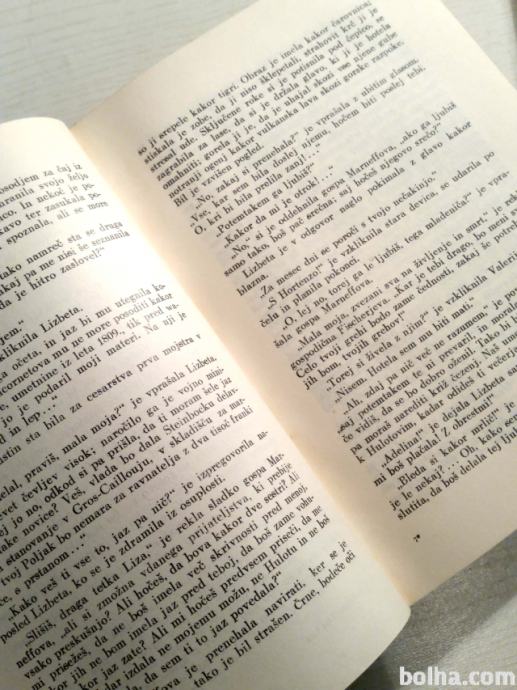 osodjem za čaj iz
aranila svojo željo
ico, in nekoč je po-
kavo ter zasukala po-
spoznala, ali se more
tako namreč sta se draga
kaj pa me nisi še seznanila
da je hitro zaslovel?“
jem.“
kliknila Lizbeta.
a očeta, in jaz bi mu utegnila ko-
icornetova mu ne more posoditi kakor
umetnine iz leta 1809., tik pred wa-
jo je podaril moji materi. Na nji je
in lep...
stin sta bila za cesarstva prva mojstra v
delal, praviš, mala moja?“ je vprašala Lizbeta.
vet čevljev visok; naročilo ga je vojno mini-
ej jo no, odkod si pa prišla, da ti moram šele jaz
take novice? Veš, vlada bo dala Steinbocku delav-
stanovanje v Gros-Caillouju, v skladišču za mar-
tvoj Poljak bo nemara za ravnatelja z dva tisoč franki
s prstanom...“
Kako veš ti vse to, jaz pa nič?“ je izpregovorila na-
posled Lizbeta, ko se je zdramila iz osuplosti.
„Slišiš, draga tetka Liza“ je rekla sladko gospa Mar-
neffova, „ali si zmožna vdanega prijateljstva, ki prebije
vsako preskušnjo? Ali hočeš, da bova kakor dve sestri? Ali
mi prisežeš, da ne boš imela več skrivnosti pred menoj,
kakor jih ne bom imela jaz pred teboj, da boš zame vohu-
kakor jaz zate? Ali mi hočeš predvsem priseči, da me
izdala ne mojemu možu, ne Hulotu in ne boš
da sem ti to jaz povedala?“
je prenehala navirati, ker se je
tako je bil strašen. Črne, bodeče oči
so ji srepele kakor tigri. Obraz je imela kakor čarovnica;
stiskala je zobe, da ji niso šklepetali, strahovit krč ji je
stresal ude. Sključene roke si je potisnila pod čepico, se
zagrabila za lase, da si je držala glavo, ki ji je hotela
omahniti; gorela je! Dim ognja,
notranji ogenj kakor vulkanska lava skozi gorske razpoke,
Bil je vzvišen pogled.
„No, zakaj si prenehala?“ je vprašala z ubitim glasom.
„Vse, kar sem bila njemu, hočem biti poslej tebi.
O, kri bi bila prelila zanj!...“
„Potemtakem ga ljubiš?“
„Kakor da mi je otrok!...“
„No,“ si je oddehnila gospa Marneffova, „ako ga ljubiš
samo tako, boš pač srečna; saj hočeš njegovo srečo?“
Lizbeta je v odgovor naglo pokimala z glavo kakor
blazna.
„Za mesec dni se poroči s tvojo nečakinjo.“
„S Hortenzo?“ je vzkliknila stara devica, se udarila po
čelu in planila pokonci.
„O, lej no, torej ga le ljubiš, tega mladeniča?“ je vpra-
šala gospa Marneffova.
„Mala moja, zvezani sva na življenje in smrt“ je rekla
gospodična Fischerjeva. „Kar je tebi drago, bo meni sveto.
Celo tvoji grehi bodo zame čednosti, zakaj še potrebovala
jih bom, tvojih grehov!“
„Torej si živela z njim?“ je vzkliknila Valerija.
„Nisem. Hotela sem mu biti mati.“
„Ah, zdaj pa nič več ne razumem,
saj potemtakem te ni ne prevaril, in morala
če vidiš, da se bo dobro oženil. Tako bi
pa moraš narediti križ čezenj.
k Hulotovim, kadar odideš ti večerjat.“
„Adelina!“ je dejala Lizbeta,
mi boš plačala! Z obrestmi
„Bleda si kakor mrlič!“ je
je le nekaj?... Oh, kako sem
slutila, da boš delala tej ljubezni